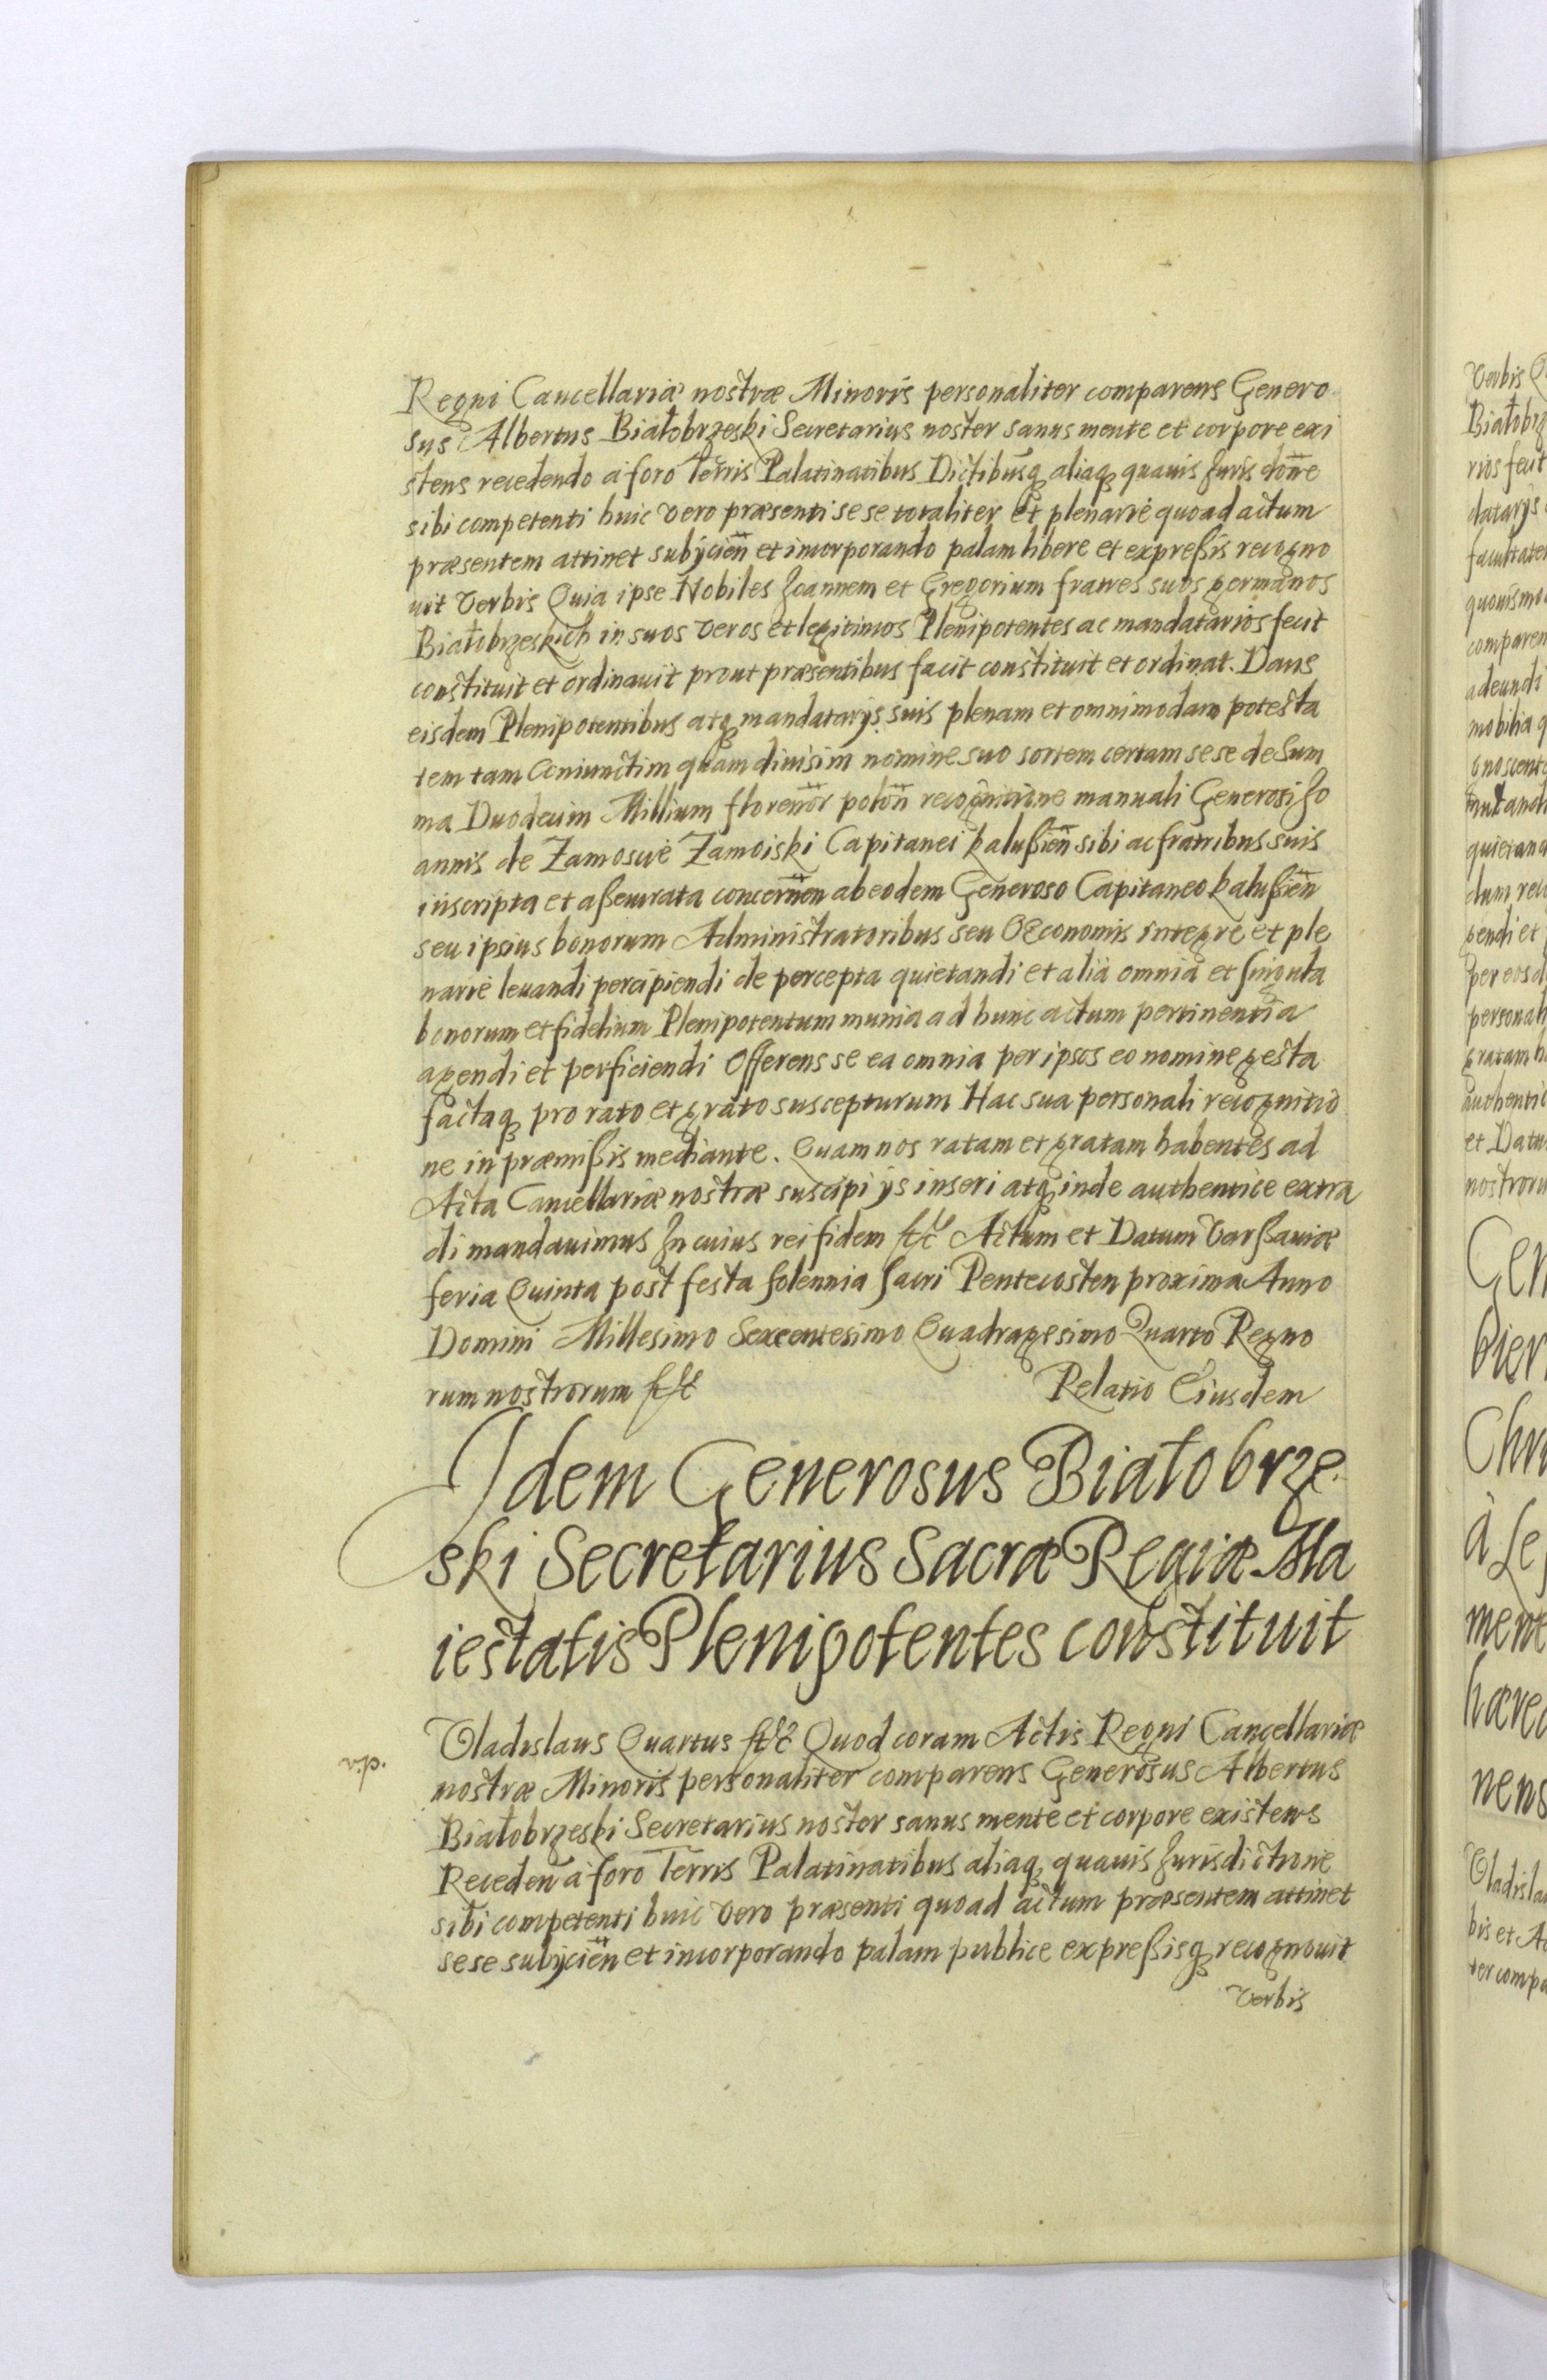 Regni Cancellariæ nostræ Minoris personaliter comparens Genero
sus Albertus Białobrzeski Secretarius noster sanus mente et corpore exi
stens recedendo a foro Terris Palatinatibus Dictibusq aliaq quauis Juris donne
sibi competenti huic vero præsenti se se totaliter et plenarie quoad actum
præsentem attinet subijcien et incorporando palam libere et expressis recogno
uit verbis Quia ipse Nobiles Joannem et Gregorium fratres suos germanos
Białobrzeskich in suos veros et legitimos Plenipotentes ac mandatarios fecit
constituit et ordinauit prout præsentibus facit constituit et ordinat. Dans
eisdem Plenipotentibus atq mandatarijs suis plenam et omnimodam potesta
tem tam Coniunctim quam diuisim nomine suo sortem certam sese de Sum
ma Duodecim Millium florenor polon recognitione manuali Generosi Jo
annis de Zamoscie Zamoiski Capitanei kalussien sibi ac fratribus suis
inscripta et assecurata concernen ab eodem Generoso Capitaneo kalussien
seu ipsius bonorum Administratoribus seu Oeconomis integre et ple
narie leuandi percipiendi de percepta quietandi et alia omnia et singula
bonorum et fidelium Plenipotentum munia ad hunc actum pertinentia
agendi et perficiendi Offerens se ea omnia per ipsos eo nomine gesta
factaq pro rato et grato suscepturum Hac sua personali recognitio
ne in præmissis mediante. Quam nos ratam et gratam habentes ad
Acta Cancellariæ nostræ suscipi ijs inseri atq inde authentice extra
di mandauimus In cuius rei fidem etc Actum et Datum Varssauiæ
feria Quinta post festa solennia sacri Pentecosten proxima Anno
Domini Millesimo Sexcentesimo Quadragesimo Quarto Regno
rum nostrorum etc Relatio Eiusdem
Idem Generosus Białobrze
ski Secretarius Sacræ Regiæ Ma
iestatis Plenipotentes constituit
Vladislaus Quartus etc Quod coram Actis Regni Cancellariæ
nostræ Minoris personaliter comparens Generosus Albertus
Białobrzeski Secretarius noster sanus mente et corpore existens
Receden a foro Terris Palatinatibus aliaq quauis Jurisdictione
sibi competenti huic vero præsenti quoad actum præsentem attinet
sese subijcien et incorporando palam publice expressisq recognouit
verbis